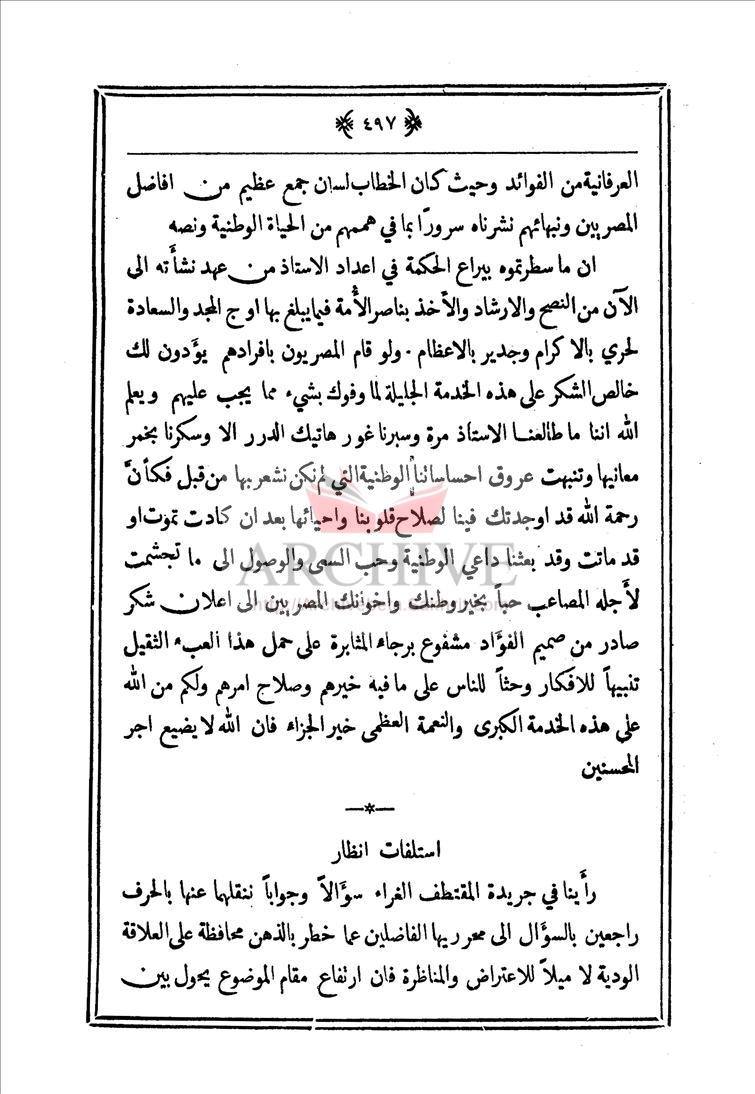 ٤٩٧
العرفانية من الفوائد وحيث كان الخطاب لسان جمع عظيم من افاضل
المصريين ونبهائهم نشرناه سرورًا بما في هممهم من الحياة الوطنية ونصه
ان ما سطرتموه بيراع الحكمة في اعداد الاستاذ من عهد نشأته الى
الآن من النصح والارشاد والأخذ بناصر الأمة فيما يبلغ بها اوج المجد والسعادة
لحري بالاكرام وجدير بالاعظام · ولو قام المصريون بافرادهم يؤدون لك
خالص الشكر على هذه الخدمة الجليلة لما وفوك بشيء مما يجب عليهم ويعلم
الله اننا ما طالعنا الاستاذ مرة وسبرنا غور هاتيك الدرر الا وسكرنا بخمر
معانيها وتنبهت عروق احساساتنا الوطنية التي لم نكن نشعر بها من قبل فكأنَّ
رحمة الله قد اوجدتك فينا لصلاح قلوبنا واحيائها بعد ان كادت تموت او
قد ماتت وقد بعثنا داعي الوطنية وحب السعى والوصول الى ما تجشمت
لأجله المصاعب حباً بخير وطنك واخوانك المصريين الى اعلان شكر
صادر من صميم الفؤاد مشفوع برجاء المثابرة على حمل هذا العبء الثقيل
تنبيهاً للافكار وحثاً للناس على ما فيه خيرهم وصلاح امرهم ولكم من الله
على هذه الخدمة الكبرى والنعمة العظمى خير الجزاء فان الله لا يضيع اجر
المحسنين
استلفات انظار
رأينا في جريدة المقتطف الغراء سؤالاً وجواباً ننقلهما عنها بالحرف
راجعين بالسؤال الى محرريها الفاضلين عما خطر بالذهن محافظة على العلاقة
الودية لا ميلاً للاعتراض والمناظرة فان ارتفاع مقام الموضوع يحول بين
ARCHIVE